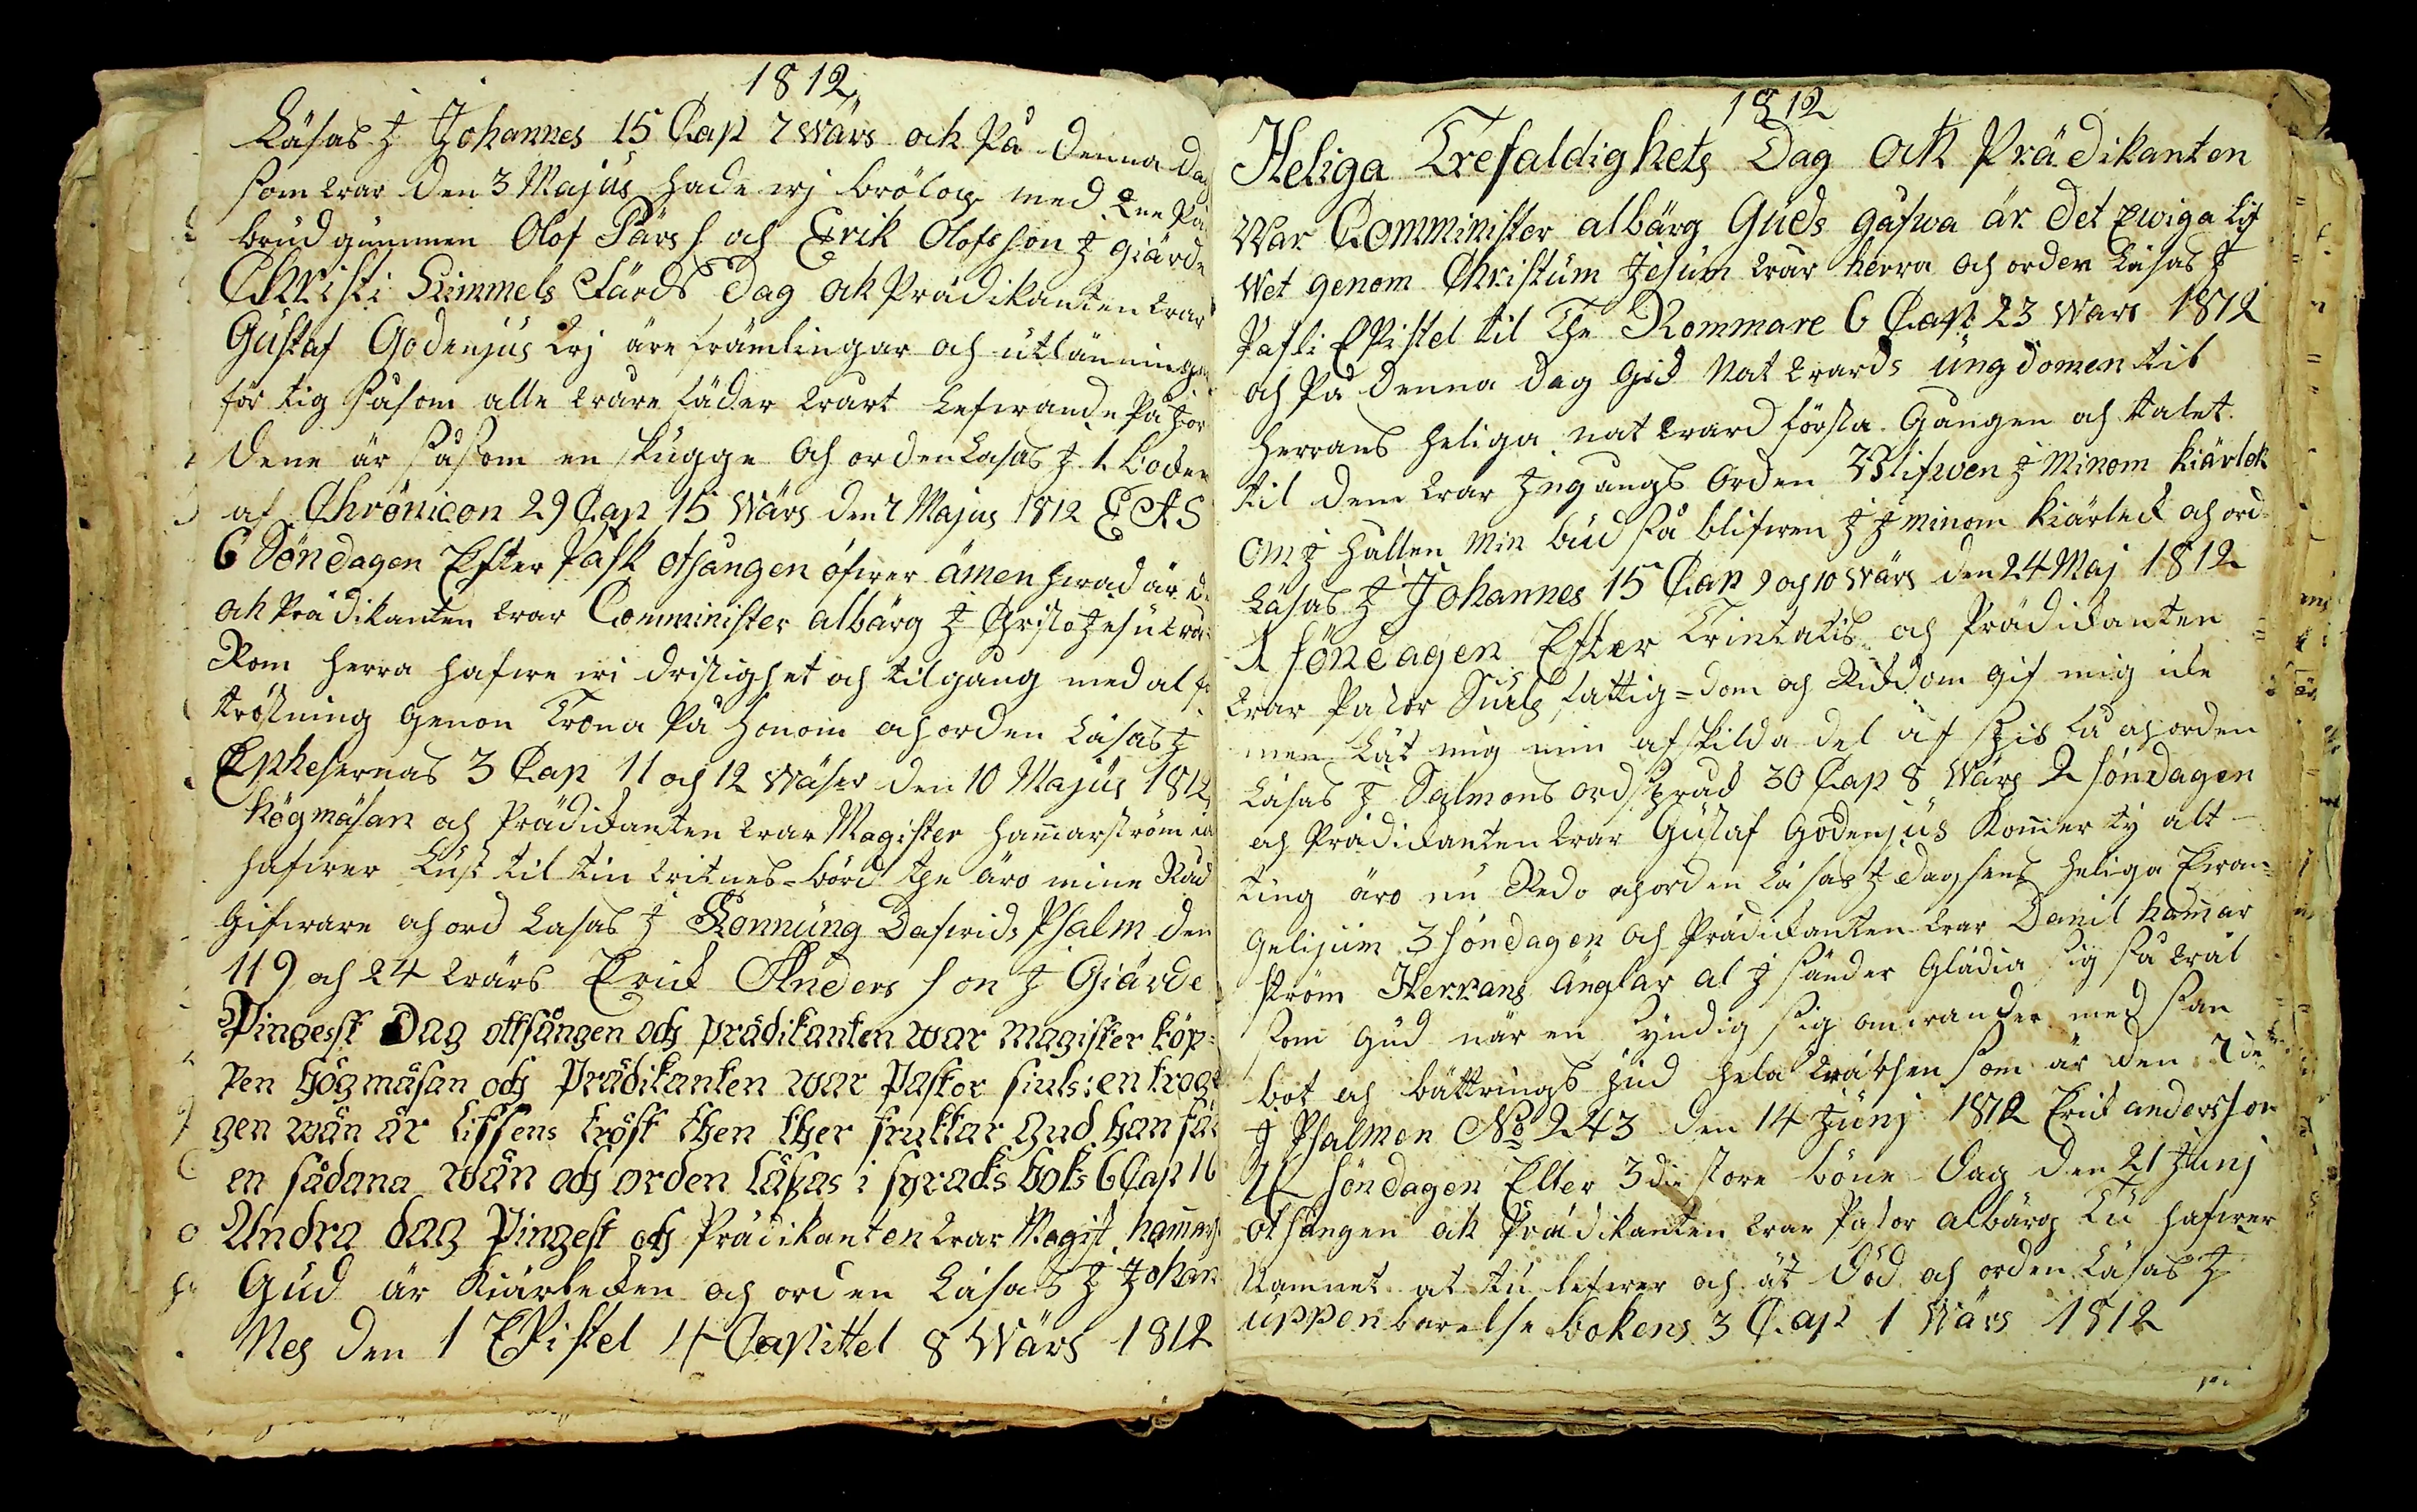 1812
Läsas I Johannes 15 Cap 7 wärs och På denna dag
som war den 3 Majus hade wj brölop med twe Pa
brudgummen Olof Pärs s och Erik Olofsson I Giärde
Christi Himmels Färds Dag och Prädikanten war
Gustaf Godenjus wj äre främlingar och utlänningar
för tig såsom alle wåre fäder warit Lefwande På Jor
dene är såsom en skugge och orden Läsas I 1. boken
af Chrönicon 29 Cap 15 wärs den 7 Majus 1812 EAS
6 Söndagen Efter Pask otsangen öfwer ämen hwad är d
ock Prädikanten war Comminister albärg I Christo Jesu wå
Rom herra hafwe wi dristighet och tilgang med al för
tröstning genom Trona På honom och orden Läsas I
Ephesernas 3 Cap 11 och 12 wäser den 10 Majus 1812
högmäsan och Prädikanten war Magister Hamarström
hafwer Lust til tin witnes-börd the äro mine Råd
Gifware och ord Läsas I Konnung Dafwids Psalm den
119 och 24 wärs Erick Anders son I Giärde
Pingesst Dag ottsången och prädikanten war magister köp=
pen högmäsan och Prädikanten war Pastor siuls: en trog
gen wän är lifsens tröst then ther fruktar Gud han får
en sådana wän och orden läsas i sÿraks boks 6 Cap 16
Andra dag Pingest och Prädikanten war Magist. hamars
Gud är Kiärleken och orden Läsas I Johan
Nes den 1 EPistel 4 Capittel 8 wärs 1812
1812
Heliga Trefaldighets Dag ock Prädikanten
War Comminister albärg Guds gåfwa är det Ewiga Lif
wet genom Christum Jesum wår herra och orden Läsas I
Pafli EPistel til The Rommare 6 Cap 23 wars 1812
och På denna dag Gick Natwards ungdomen til
herrans heliga natward första Gangen och talet
til dem war Ingangs orden Blifwen I Minom Kiärlek
om I hallen min bud så blifwen I I minom Kiärleck och ord
Läsas I Johannes 15 Cap 9 och 10 wärs den 24 Maj 1812
1 söndagen Efter Trintatis och Prädikanten
war Pastor Siuls fattig=dom och Rikdom gif mig icke
men Låt mig min afskilda del af spis få och orden
Läsas I Salmons ordspråk 30 Cap 8 Wärs 2 söndagen
och Prädikanten war Gustaf Godenjus Komer ty alt-
ting äro nu Redo och orden Läsas I dagsens heliga Ewan=
gelijum 3 söndagen och Prädikanten war Danil hamar
ström Herrans änglar al I sänder Glädia sig så wäl
som Gud när en syndig sig omwänder med san
bot och bättrings hela wärsen som är den 7de
I Psalmen No 243 den 14 Junj 1812 Erick andersson
4 söndagen Efter 3die store böne Dag den 21 Junj
otsangen ock Prädikanten war Pastor albärg Tu hafwer
Namnet at tu lefwer och äst död och orden Läsas I
uppenbarelse bokens 3 Cap 1 wärs 1812